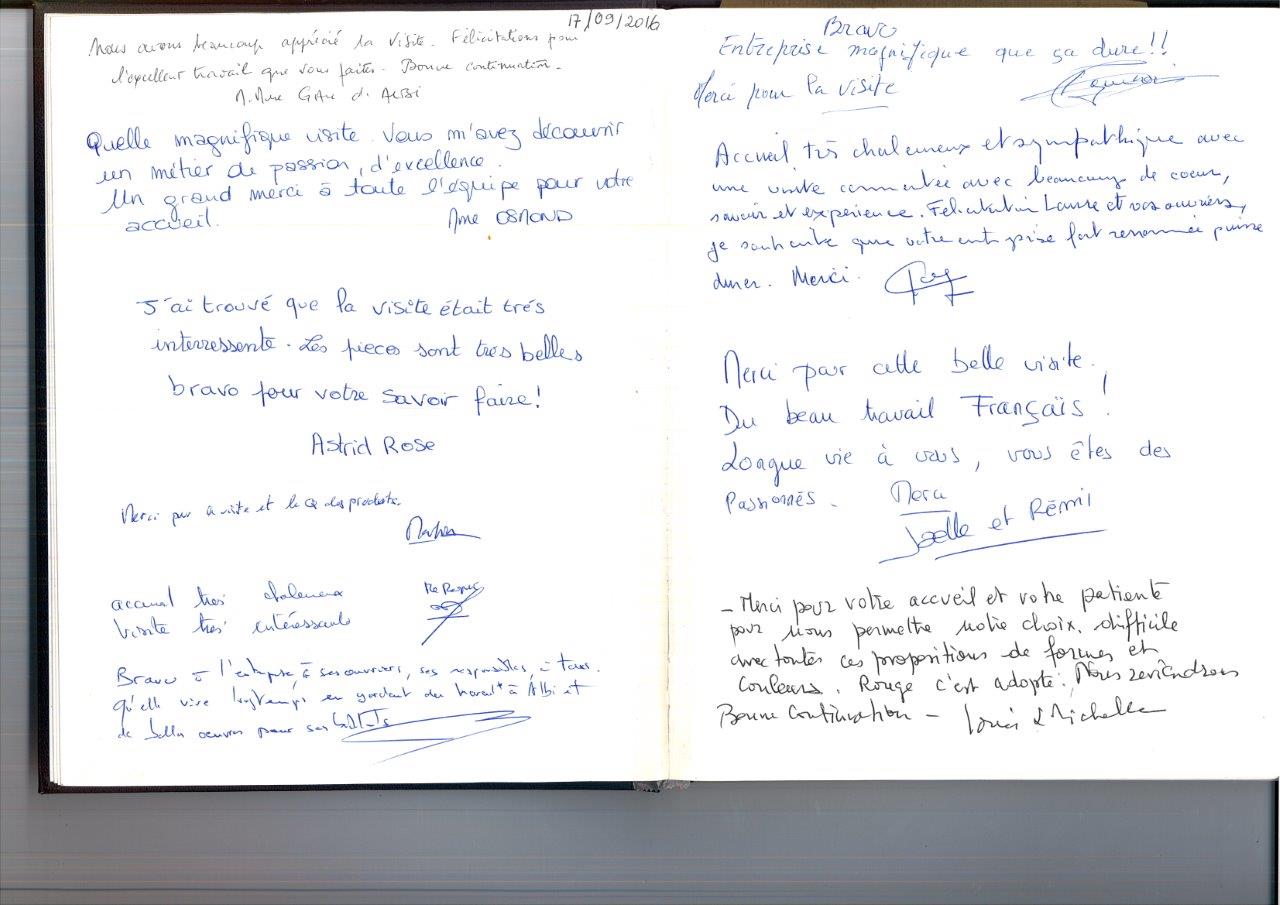 17/09/2016
Nous avons beaucoup apprécié la visite. Félicitations pour
l'excellent travail que vous faites. Bonne continuation.
M. Mme d'ALBI
Quelle magnifique visite. Vous m'avez découvrir
un métier de passion, d'excellence.
Un grand merci à toute l'équipe pour votre
accueil. Mme OSMOND
J'ai trouvé que la visite était trés
interressente. Les pieces sont tres belles
bravo pour votre savoir faire!
Astrid Rose
Merci pour la visite et la Q des produits.
accueil très chaleureux
Visite très intéressante
Bravo à l'entreprise, à ses ouvriers, ses responsables, à tous.
qu'elle vive longtemps en gardant du travail à Albi et
de belles oeuvres pour ses
Bravo
Entreprise magnifique que ça dure!!
Merci pour la visite
Accueil très chaleureux et sympathique avec
une visite commentée avec beaucoup de coeur,
savoir et expérience. Félicitation Laure et vos ouvriers,
je souhaite que votre entreprise fort renommée puisse
durer. Merci.
Merci pour cette belle visite.
Du beau travail Français !
Longue vie à vous, vous êtes des
Passionnés. Merci
Joëlle et Rémi
- Merci pour votre accueil et votre patiente
pour nous permettre notre choix. difficile
avec toutes ces propositions de formes et
Couleurs. Rouge c'est adopté. Nous reviendrons
Bonne Continuation - Louis & Michelle